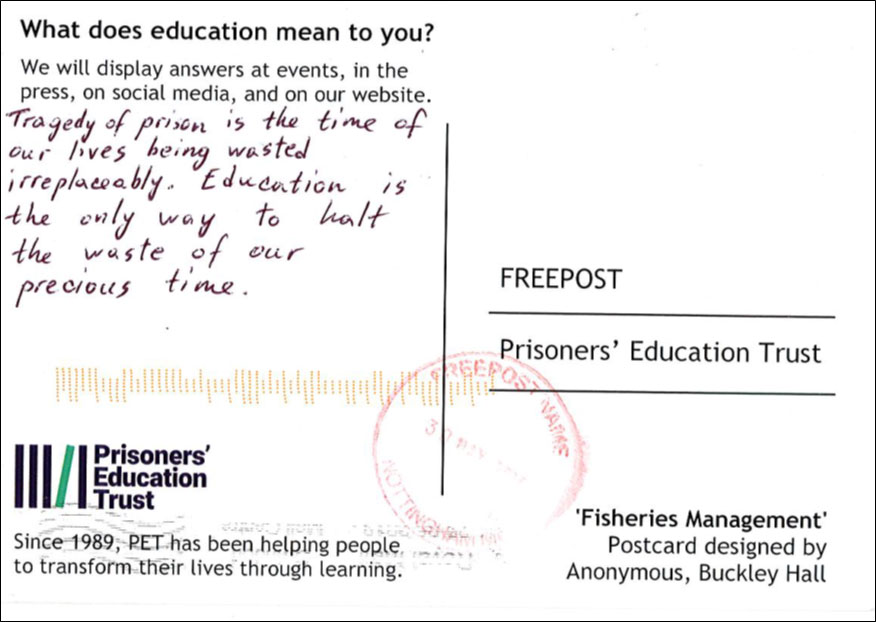 What does education mean to you?
We will display answers at events, in the
press, on social media, and on our website.
Tragedy of prison is the time of
our lives being wasted
irreplaceably. Education is
the only way to halt
the waste of our
precious time.
FREEPOST
Prisoners' Education Trust
FREEPOST NAME
30
NOTTINGHAM
Prisoners'
Education
Trust
Since 1989, PET has been helping people
to transform their lives through learning.
'Fisheries Management'
Postcard designed by
Anonymous, Buckley Hall